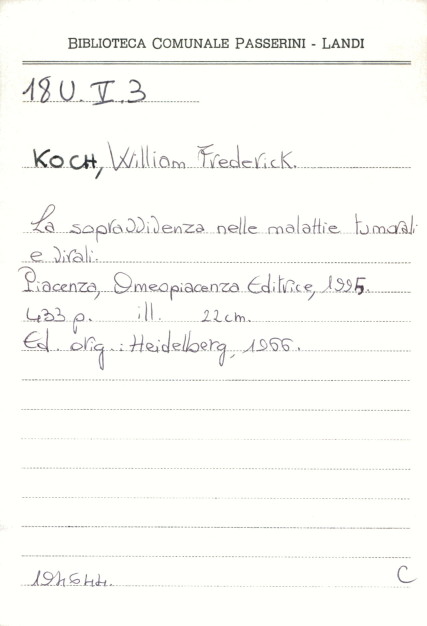 BIBLIOTECA COMUNALE PASSERINI - LANDI
18 U. V. 3
KOCH, William Frederick.
La sopravvivenza nelle malattie tumorali
e virali.
Piacenza, Omeopiacenza Editrice, 1995.
433 p. ill. 22 cm.
Ed. orig.: Heidelberg, 1966.
194644.
C